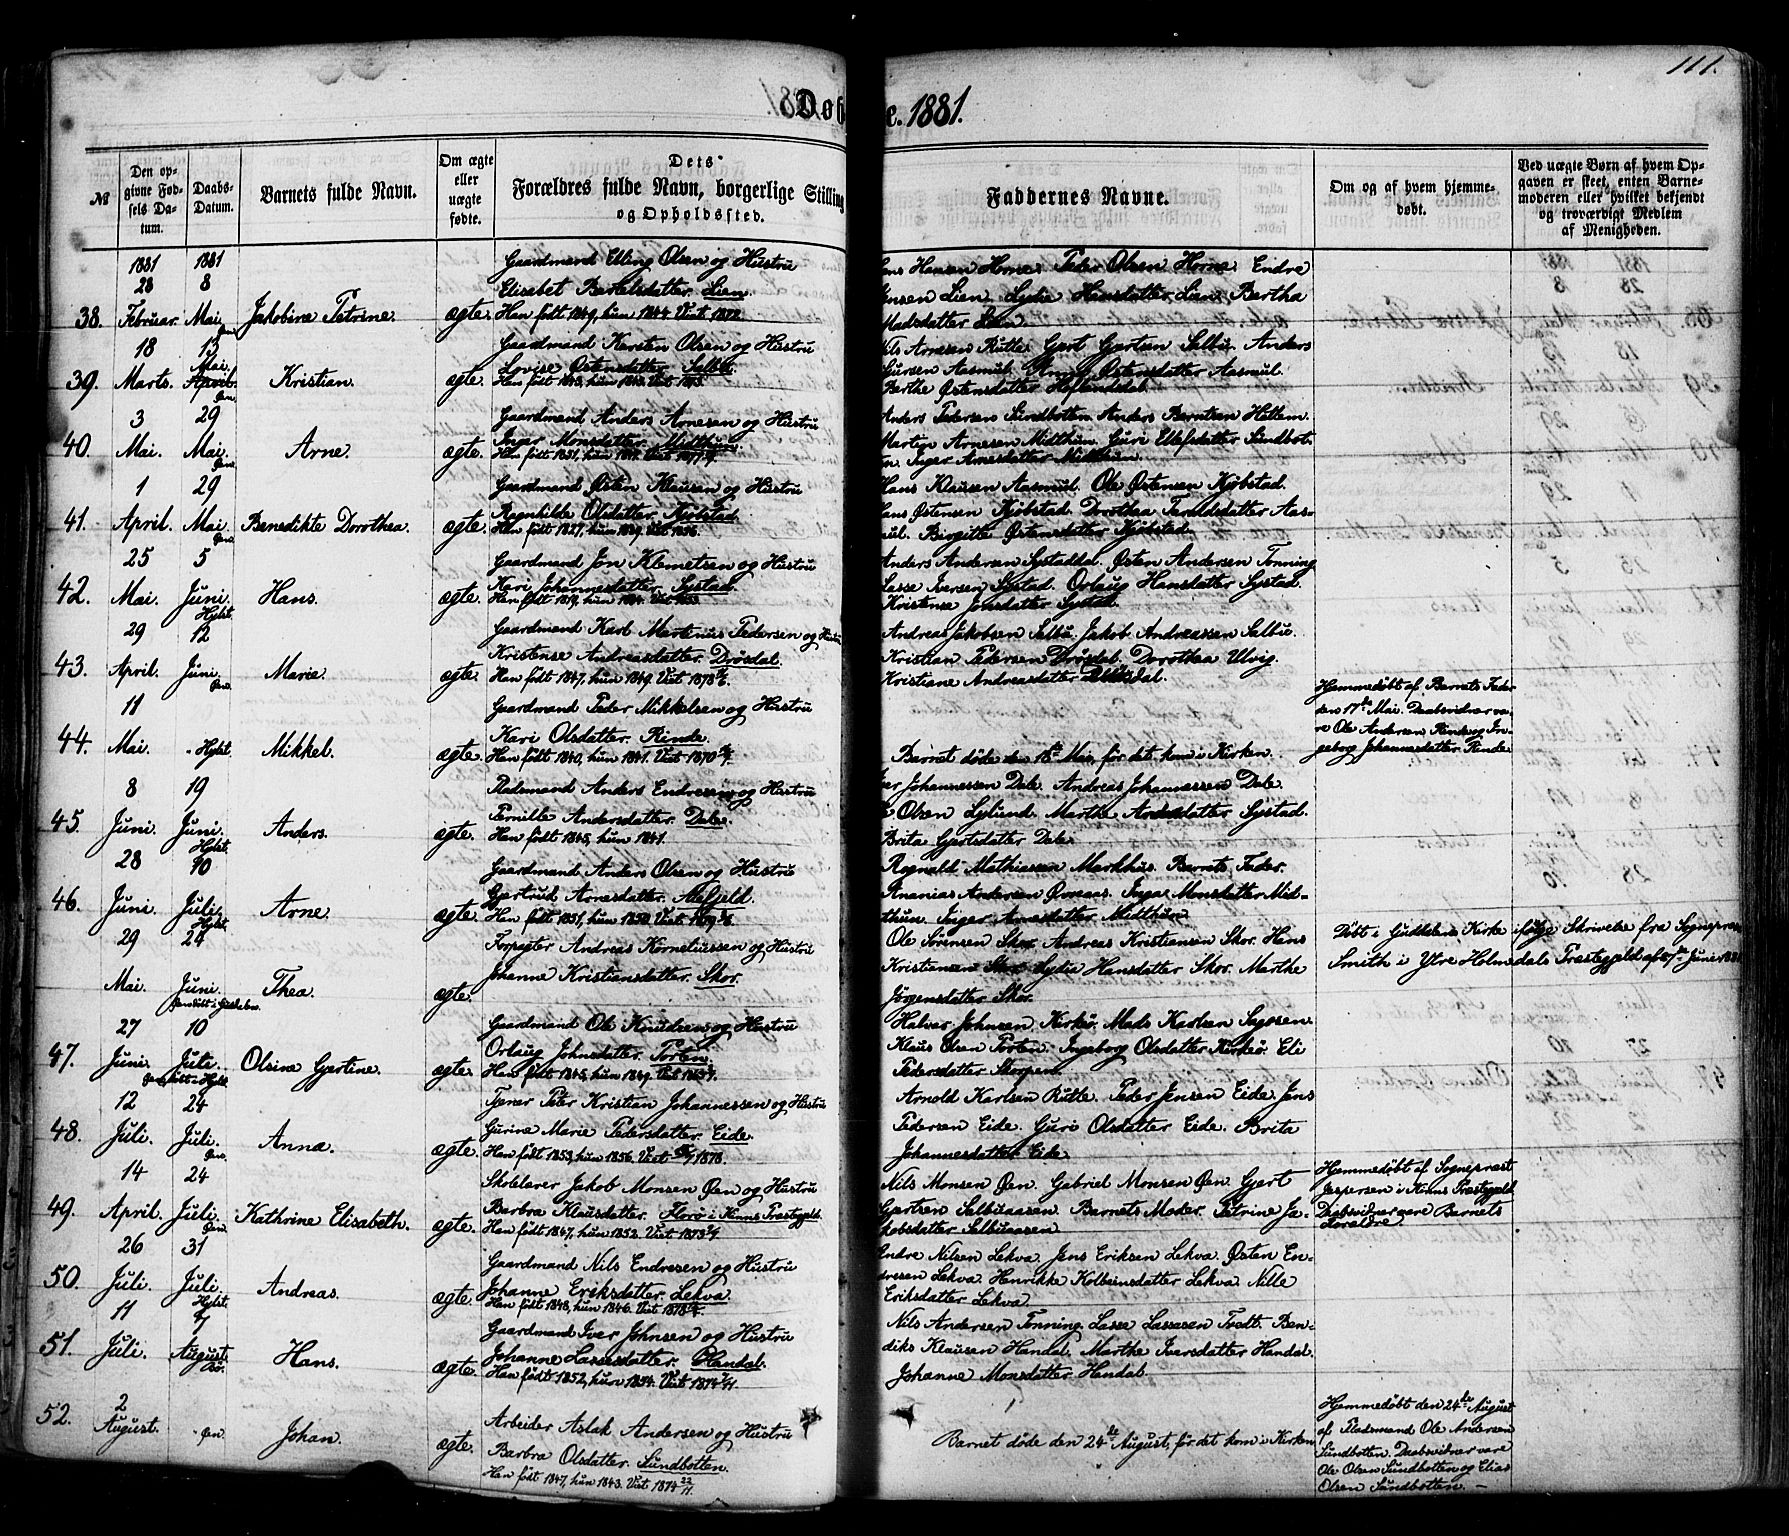 111.
Døb
e. 1881.
№
Den op-
givne Fød-
sels Da-
tum.
Daabs-
Datum.
Barnets fulde Navn.
Om ægte
eller
uægte
fødte.
Dets
Forældres fulde Navn, borgerlige Stilling
og Opholdssted.
Faddernes Navne.
Om og af hvem hjemme-
døbt.
Ved uægte Børn af hvem Op-
gaven er skeet, enten Barne-
moderen eller hvilket bekjendt
og troværdigt Medlem
af Menigheden.
1881 1881
28 8
38. Februar. Mai Jakobine Petrine. ægte.
Gaardmand Elling Olsen og Hustru
Elisabet Bertelsdatter. Lien
Han født 1849, hun 1844. Viet 1872.
Hans Hansen Horne. Peder Olsen Horne. Endre
Jensen Lien. Lydia Hansdatter Lien. Bertha
Madsdatter Lien.
18 13
39. Marts. Mai. April. Kristian. ægte.
Gaardmand Karsten Olsen og Hustru
Lovise Østensdatter. Selbu
Nils Arnesen Rutle. Gjert Gjertsen Selbu. Anders
Aasmul. Anna Østensdatter Aasmul.
Berthe Østensdatter Hoflandsdal.
3 29
40. Mai. Mai. Arne. ægte.
Gaardmand Anders Arnesen og Hustru
Inger Monsdatter. Midthun.
Anders Pedersen Sundbotten. Anders Berntsen Hellem.
Martin Arnesen Midthun. Guri Ellefsdatter Sundbot-
ten. Inger Arnesdatter Midthun.
1 29
41. April. Mai Benedikte Dorothea. ægte.
Gaardmand Østen Klausen og Hustru
Ragnhilde Olsdatter. Kjøbstad.
Hans Klausen Aasmul. Ole Østensen Kjøbstad.
Hans Østensen Kjøbstad. Dorothea Taraldsdatter Aas-
mul. Birgitte Østensdatter Kjøbstad.
25 5
42. Mai. Juni. Hylst. Hans. ægte.
Gaardmand Jon Klemetsen og Hustru
Kari Johannesdatter. Systad.
Anders Andersen Systaddal. Østen Andersen Tonning
Lasse Iversen Systad. Orlaug Hansdatter Systad.
Kristense Jonsdatter Systad.
29 12
43. April. Juni. Marie. ægte.
Gaardmand Karl Martenus Pedersen og Hustru
Kristense Andreasdatter. Drøsdal.
Han født 1847, hun 1849. Viet 1878
Andreas Jakobsen Selbu. Jakob Andreassen Selbu.
Kristian Pedersen Drøsdal. Dorothea Ulvig.
Kristiane Andreasdatter
11
44. Mai. Hylst. Mikkel. ægte.
Gaardmand Peder Mikkelsen og Hustru
Kari Olsdatter. Rinde.
Han født 1840, hun 1841. Viet 1870
Barnet døde den 18de Mai, før det kom i Kirken.
Hjemmedøbt af Barnets Fader
den 17de Mai. Daabsvidner va-
re Ole Andersen Rinde og In-
geborg Johannesdatter Rinde.
8 19
45. Juni. Juni. Hylst. Anders. ægte.
Pladsmand Anders Endresen og Hustru
Pernille Andersdatter. Dale.
Han født 1845, hun 1841.
Iver Johannessen Dale. Andreas Johannessen Dale.
Olsen Lyslund. Marthe Andersdatter Systad.
Brita Gjertsdatter Dale.
28 10
46. Juni. Juli. Hylst. Arne. ægte.
Gaardmand Anders Olsen og Hustru
Gjertrud Arnesdatter.
Han født 1851, hun 1850.
Rognald Mathiassen Markhus. Barnets Fader.
Ananias Andersen Øvreaas. Inger Monsdatter Mid-
thun. Inger Arnesdatter Midthun.
29 24
Mai. Juni. Thea. ægte.
Forpagter Andreas Korneliussen og Hustru
Johanne Kristiansdatter. Skor.
Ole Sørensen Skor. Andreas Kristiansen Skor. Hans
Kristiansen Skor. Lydia Hansdatter Skor. Marthe
Jørgensdatter Skor.
Døbt i Gudlelens Kirke ifølge Skrivelse fra Sognepræst
Smith i Ytre Holmedals Præstegjeld af Juni 1881
27 10
47. Juni. Juli. Olsine Gjertine. ægte.
Gaardmand Ole Knudsen og Hustru
Orlaug Johnsdatter. Torten.
Halvar Johnsen Kirkø. Mads Karlsen Sagøsen.
Klaus Olsen Torten. Ingeborg Olsdatter Kirkø. Eli
Pedersdatter Skorpen.
12 24
48. Juli. Juli. Anna. ægte.
Tjener Peter Kristian Johannessen og Hustru
Gurine Marie Pedersdatter. Eide.
Han født 1853, hun 1856. Viet 1878.
Arnold Karlsen Rutle. Peder Jensen Eide. Jens
Pedersen Eide. Guri Olsdatter Eide. Brita
Johannesdatter Eide.
14 24
49. April. Juli. Kathrine Elisabeth. ægte.
Skolelærer Jakob Monsen Øen og Hustru
Barbra Klausdatter. Florø i Kinns Præstegjeld.
Han født 1847, hun 1852. Viet 1873
Nils Monsen Øen. Gabriel Monsen Øen. Gjert
Gjertsen Selbuaasen. Barnets Moder. Petrine Ja-
kobsdatter Selbuaasen
Hjemmedøbt af Sognepræst
Jespersen i Kinns Præstegjeld
Daabsvidner vare Barnets
Forældre
26 31
50. Juli. Juli. Hylst. Andreas. ægte.
Gaardmand Nils Endresen og Hustru
Johanne Eriksdatter. Lekva.
Han født 1848, hun 1846. Viet 1878
Endre Nilsen Lekva. Jens Eriksen Lekva. Østen En-
dresen Lekva. Henrikke Kolbeinsdatter Lekva. Nille
Eriksdatter Lekva.
11 7
51. Juli. August. Hans. ægte.
Gaardmand Iver Johnsen og Hustru
Johanne Lassesdatter. Handal.
Han født 1852, hun 1854. Viet 1874
Nils Andersen Tonning. Lasse Lassesen Tradt. Ben-
dik Klausen Handal. Marthe Iversdatter Handal.
Johanne Monsdatter Handal.
2
52. August. Øen. Johan. ægte.
Arbeider Aslak Andersen og Hustru
Barbra Olsdatter. Sundbotten.
Han født 1847, hun 1843. Viet 1874 22/11
Barnet døde den 24de August, før det kom i Kirken
Hjemmedøbt den 24de August
af Pladsmand Ole Andersen
Sundbotten. Daabsvidner vare
Ole Olsen Sundbotten og Elias
Olsen Sundbotten. –